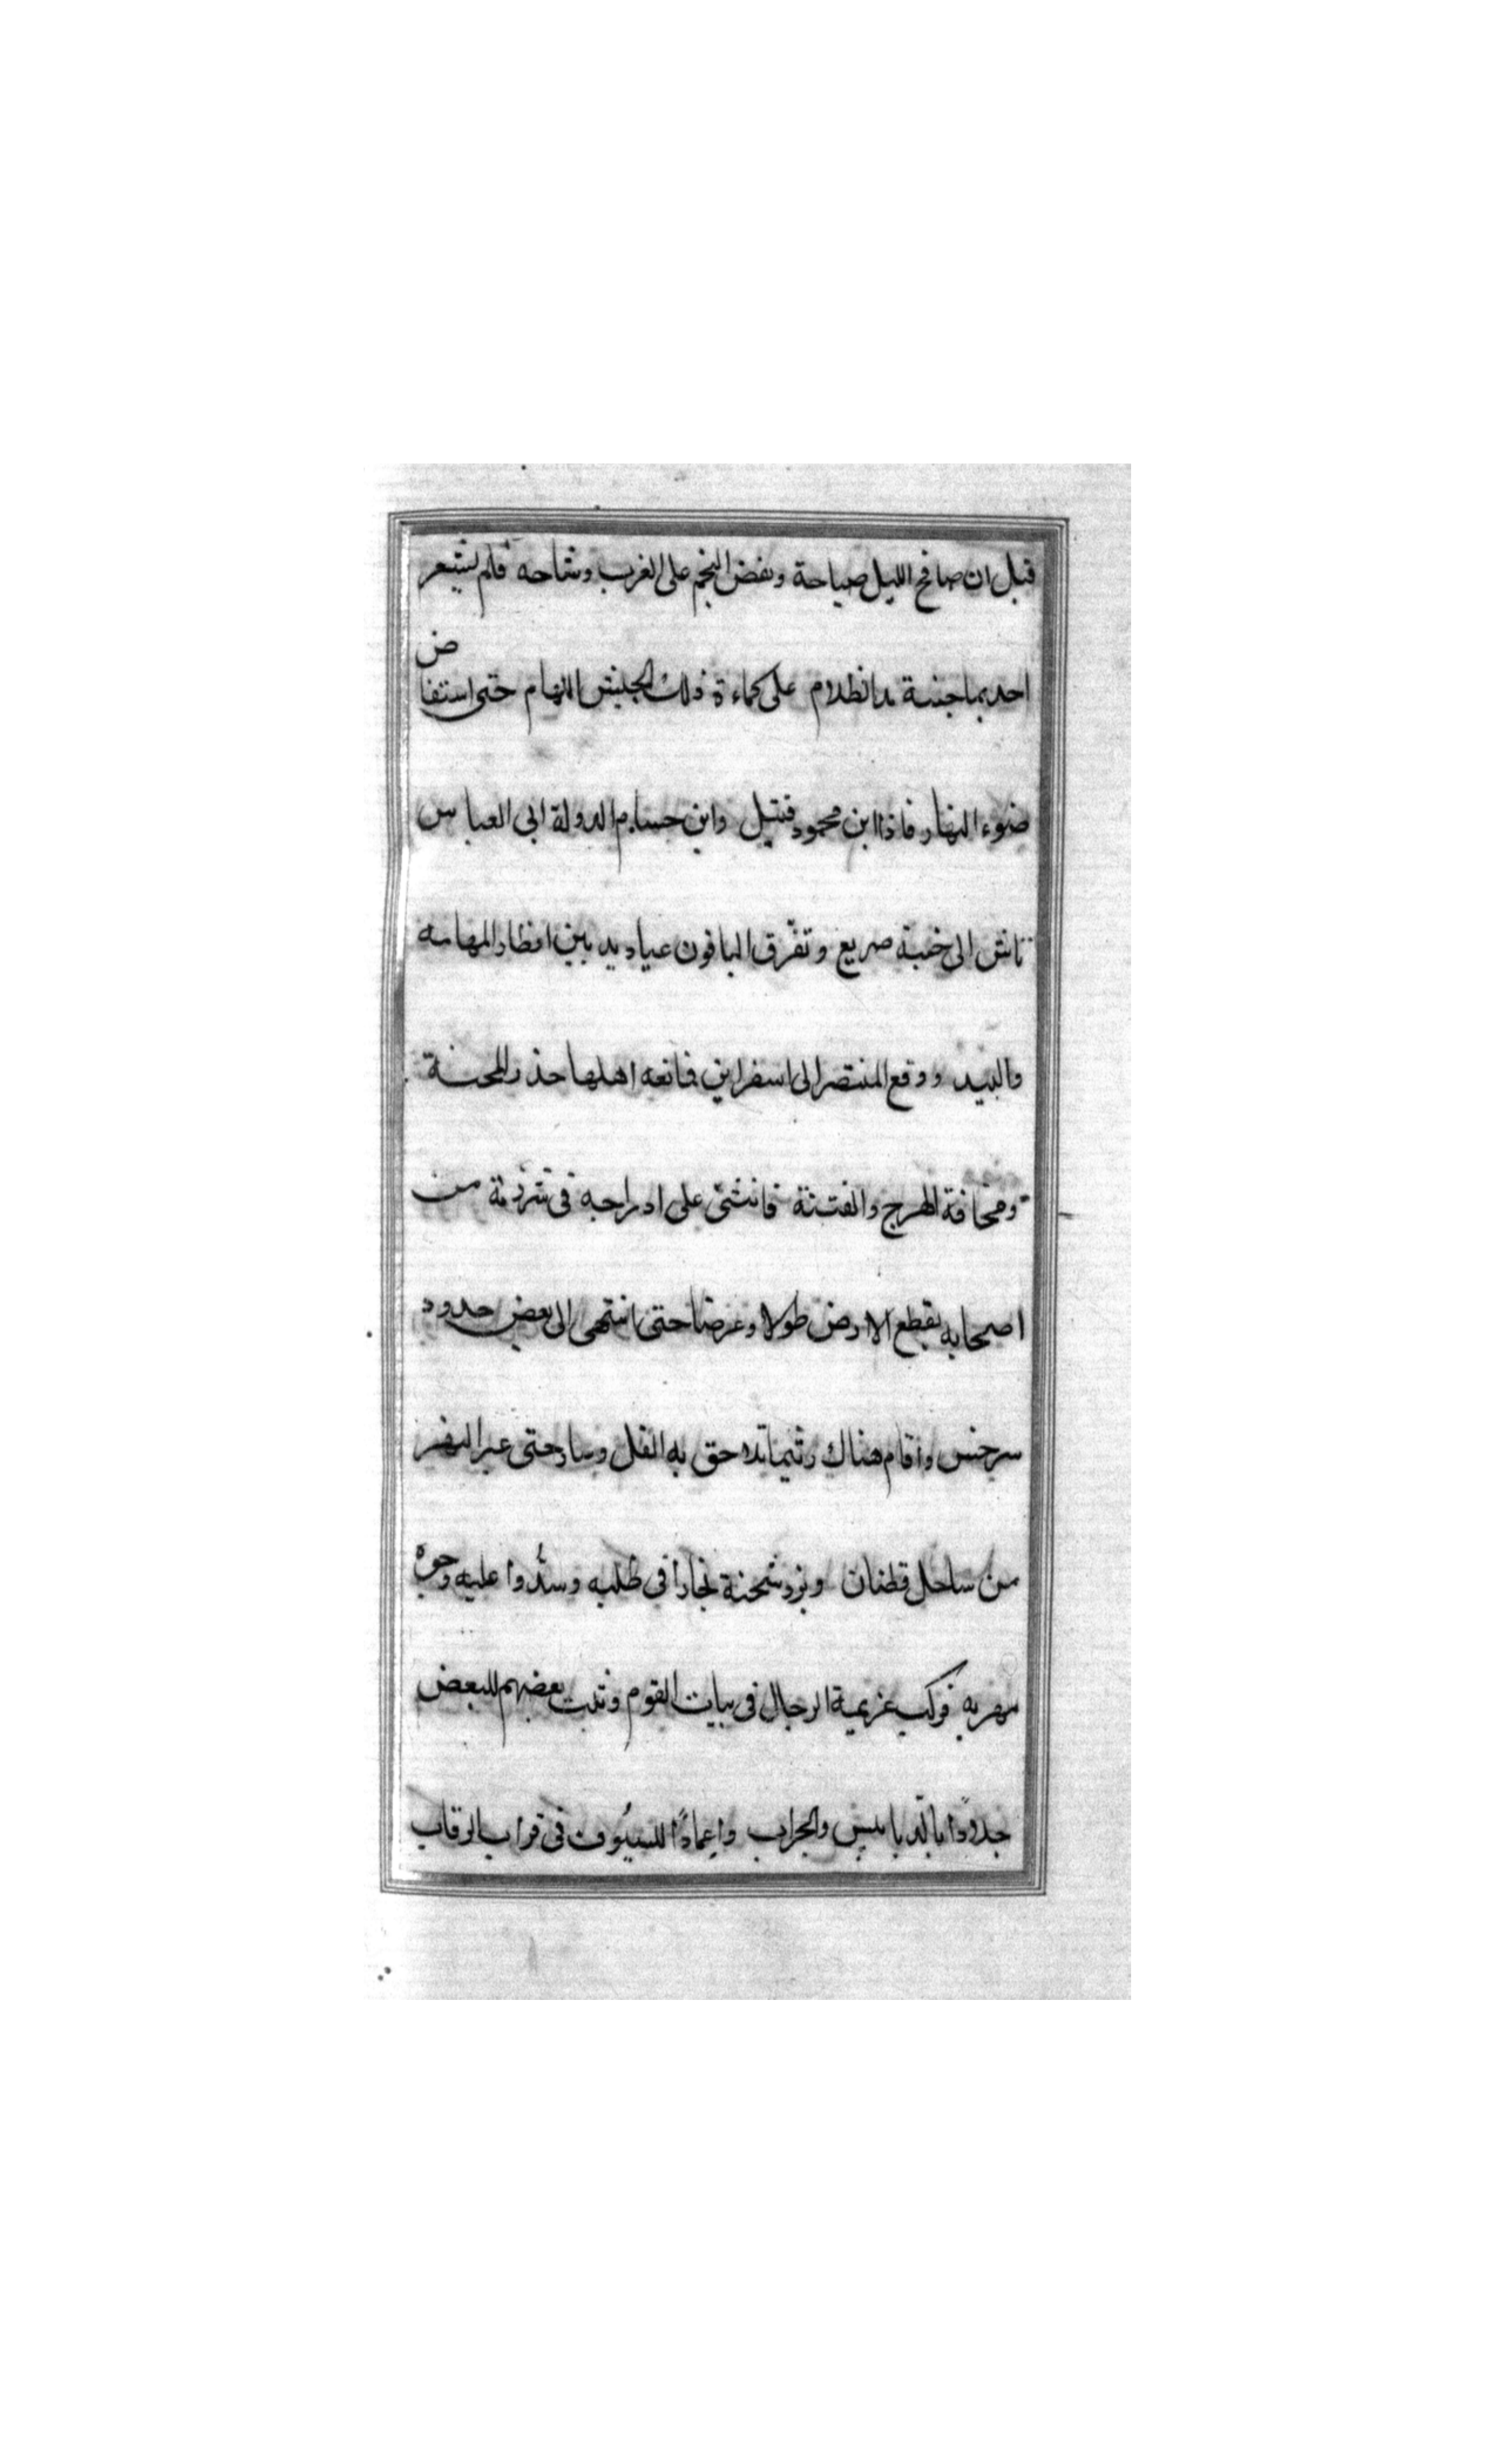 قبل ان صافح الليل صباحة ونفض النجم على الغرب وشاحه فلم يشعر
احد بما جنبة مدا نظلام على كماءة ذلك الجيش اللهام حتى استفاض
ضوء النهار فاذا ابن محمود قتيل وابن حسام الدولة ابى العباس
تاش الى خبنة صريع وتفرّق الباقون عباديد بين اقطار المهامه
والبيد ووقع المنتصر الى اسفراين فمانعه اهلها حذر المحنة
ومخافة الهرج والفتنة فانثنى على ادراجه فى شرذمة من
اصحابه يقطع الارض طولا وعرضا حتى انتهى الى بعض حدود
سرخس واقام هناك رثيما تلاحق به الفل وسار حتى عبر النهر
من ساحل قطنان وبرز شحنة بخارا فى طلبه وسدّوا عليه وجوه
مهربه فركب عزيمة الرجال فى بيات القوم وثبت بعضهم للبعض
جدوًا بالدبابيس والحراب واغمادًا للسيُوف فى قراب الرقاب